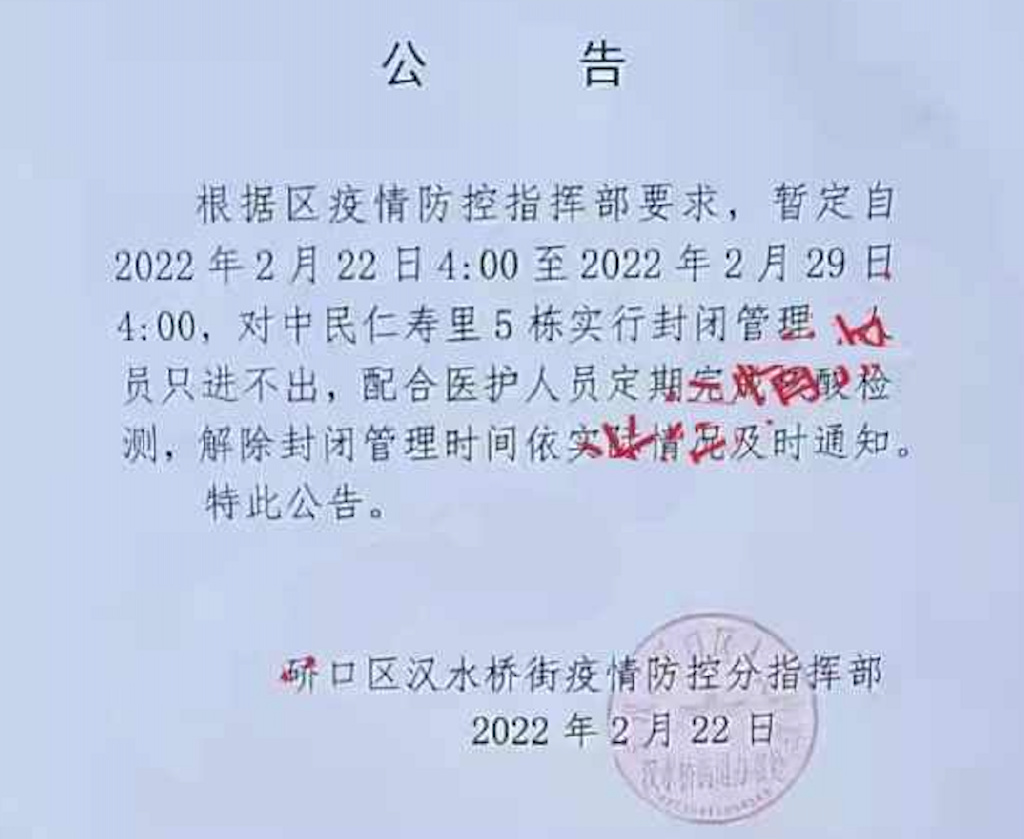 公 告
根据区疫情防控指挥部要求，暂定自
2022年2月22日4:00至2022年2月29日
4:00，对中民仁寿里5栋实行封闭管理，人
员只进不出，配合医护人员定期完成核酸检
测，解除封闭管理时间依实际情况及时通知。
特此公告。
硚口区汉水桥街疫情防控分指挥部
2022年2月22日